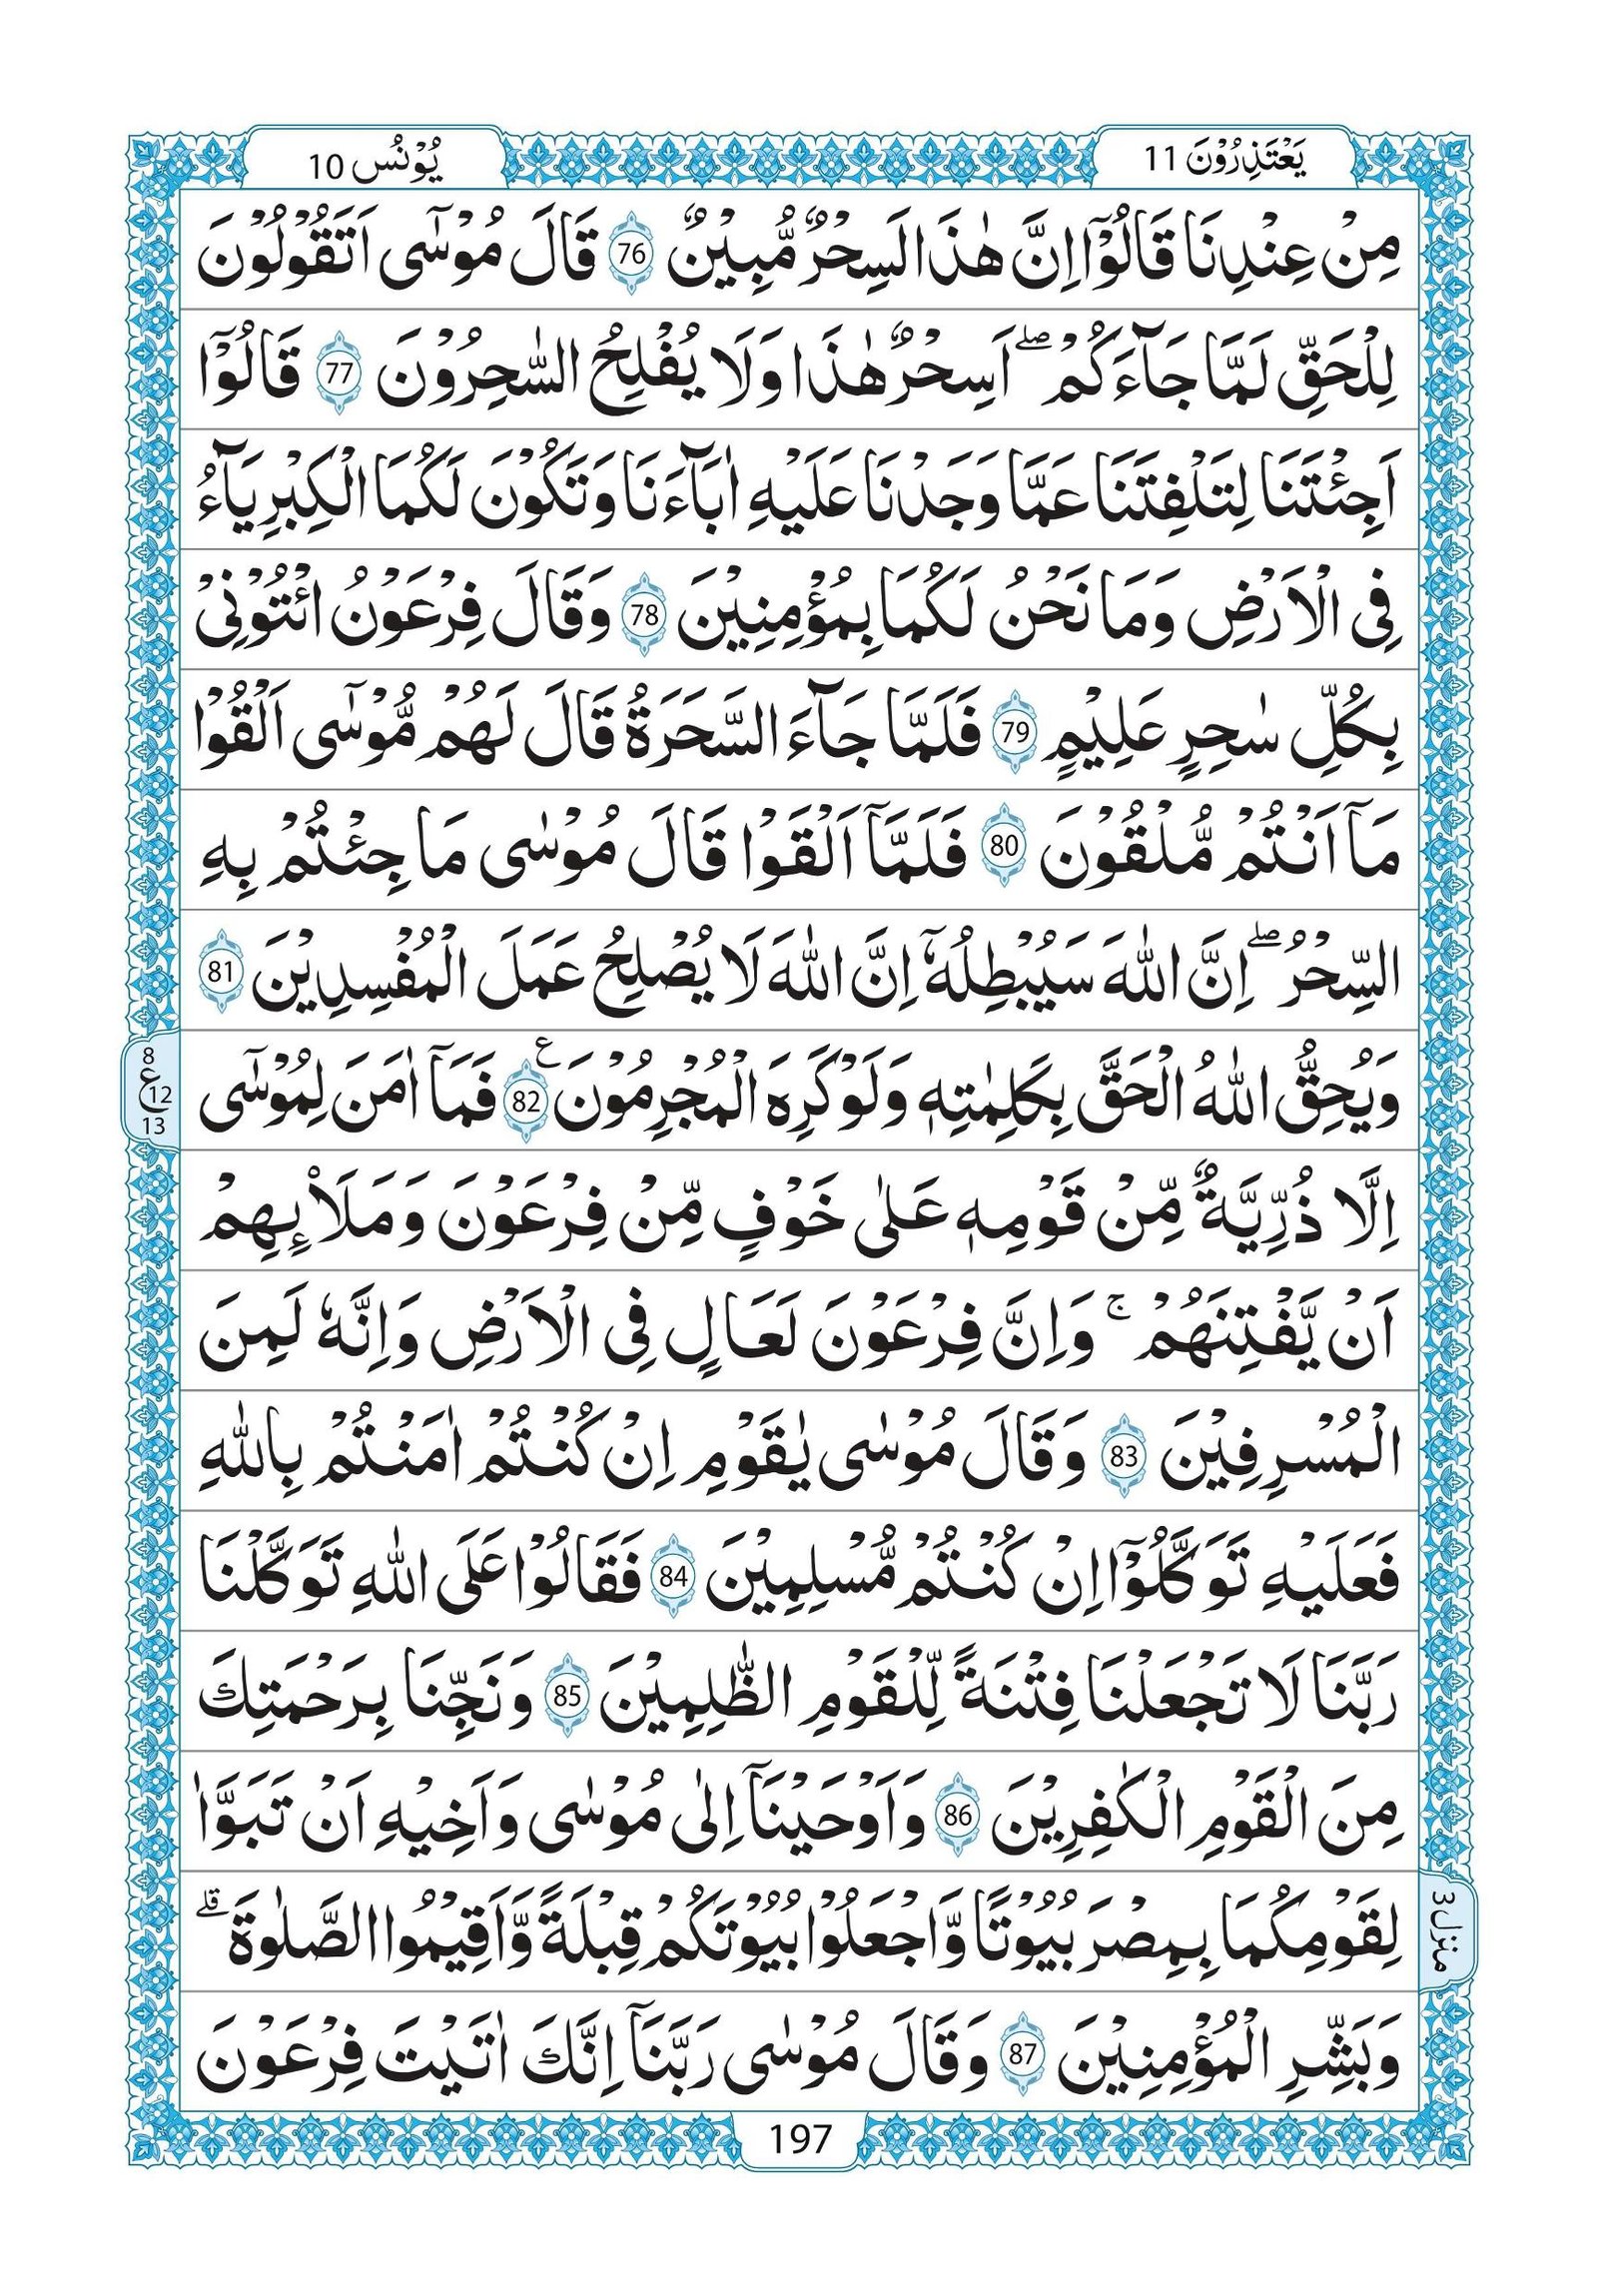 يَعْتَذِرُوْنَ 11
يُوْنُس 10
مِنْ عِنْدِنَا قَالُوْٓا اِنَّ هٰذَا لَسِحْرٌ مُّبِيْنٌ 76 قَالَ مُوْسٰٓى اَتَقُوْلُوْنَ
لِلْحَقِّ لَمَّا جَآءَكُمْ ۖ اَسِحْرٌ هٰذَا وَلَا يُفْلِحُ السّٰحِرُوْنَ 77 قَالُوْٓا
اَجِئْتَنَا لِتَلْفِتَنَا عَمَّا وَجَدْنَا عَلَيْهِ اٰبَآءَنَا وَتَكُوْنَ لَكُمَا الْكِبْرِيَآءُ
فِى الْاَرْضِ وَمَا نَحْنُ لَكُمَا بِمُؤْمِنِيْنَ 78 وَقَالَ فِرْعَوْنُ ائْتُوْنِىْ
بِكُلِّ سٰحِرٍ عَلِيْمٍ 79 فَلَمَّا جَآءَ السَّحَرَةُ قَالَ لَهُمْ مُّوْسٰٓى اَلْقُوْا
مَآ اَنْتُمْ مُّلْقُوْنَ 80 فَلَمَّآ اَلْقَوْا قَالَ مُوْسٰى مَا جِئْتُمْ بِهِ
السِّحْرُ ۖ اِنَّ اللّٰهَ سَيُبْطِلُهٗٓ اِنَّ اللّٰهَ لَا يُصْلِحُ عَمَلَ الْمُفْسِدِيْنَ 81
وَيُحِقُّ اللّٰهُ الْحَقَّ بِكَلِمٰتِهٖ وَلَوْ كَرِهَ الْمُجْرِمُوْنَ ع 82 فَمَآ اٰمَنَ لِمُوْسٰٓى
8
ع 12
13
اِلَّا ذُرِّيَّةٌ مِّنْ قَوْمِهٖ عَلٰى خَوْفٍ مِّنْ فِرْعَوْنَ وَمَلَا۟ئِهِمْ
اَنْ يَّفْتِنَهُمْ ۚ وَاِنَّ فِرْعَوْنَ لَعَالٍ فِى الْاَرْضِ وَاِنَّهٗ لَمِنَ
الْمُسْرِفِيْنَ 83 وَقَالَ مُوْسٰى يٰقَوْمِ اِنْ كُنْتُمْ اٰمَنْتُمْ بِاللّٰهِ
فَعَلَيْهِ تَوَكَّلُوْٓا اِنْ كُنْتُمْ مُّسْلِمِيْنَ 84 فَقَالُوْا عَلَى اللّٰهِ تَوَكَّلْنَا
رَبَّنَا لَا تَجْعَلْنَا فِتْنَةً لِّلْقَوْمِ الظّٰلِمِيْنَ 85 وَنَجِّنَا بِرَحْمَتِكَ
مِنَ الْقَوْمِ الْكٰفِرِيْنَ 86 وَاَوْحَيْنَآ اِلٰى مُوْسٰى وَاَخِيْهِ اَنْ تَبَوَّاٰ
لِقَوْمِكُمَا بِمِصْرَ بُيُوْتًا وَّاجْعَلُوْا بُيُوْتَكُمْ قِبْلَةً وَّاَقِيْمُوا الصَّلٰوةَ ۗ
منزل 3
وَبَشِّرِ الْمُؤْمِنِيْنَ 87 وَقَالَ مُوْسٰى رَبَّنَآ اِنَّكَ اٰتَيْتَ فِرْعَوْنَ
197